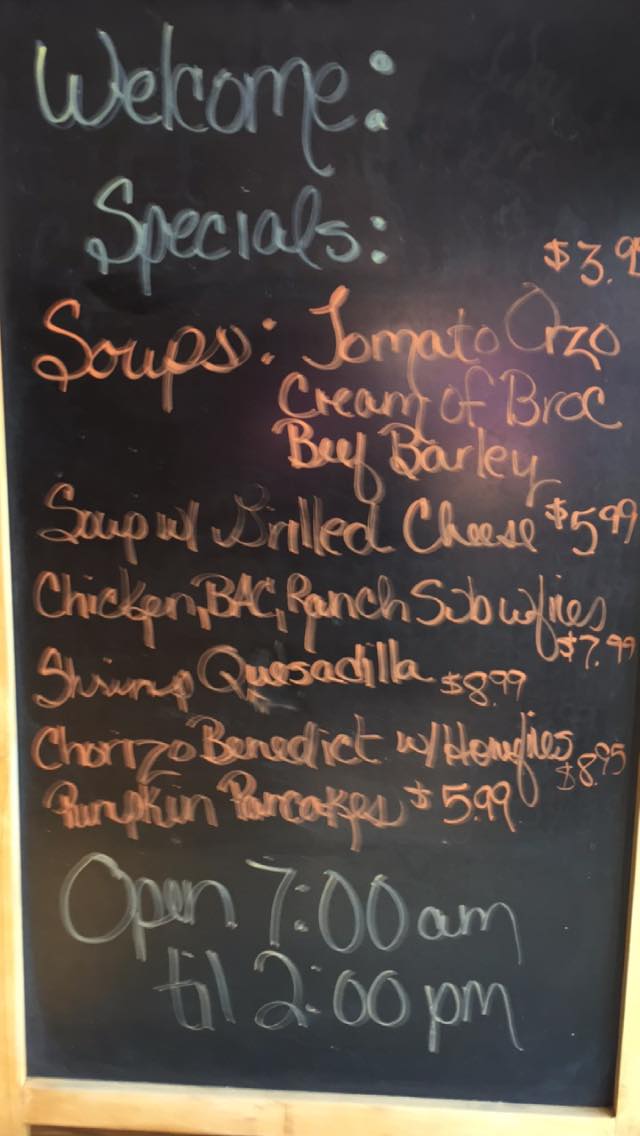 Welcome:
Specials:
$3.95
Soups: Tomato Orzo
Cream of Broc
Beef Barley
Soup w/ Grilled Cheese $5.99
Chicken, BAC, Ranch Sub w/fries
$7.99
Shrimp Quesadilla $8.99
Chorizo Benedict w/Homefries
$8.95
Pumpkin Pancakes $5.99
Open 7:00 am
til 2:00 pm